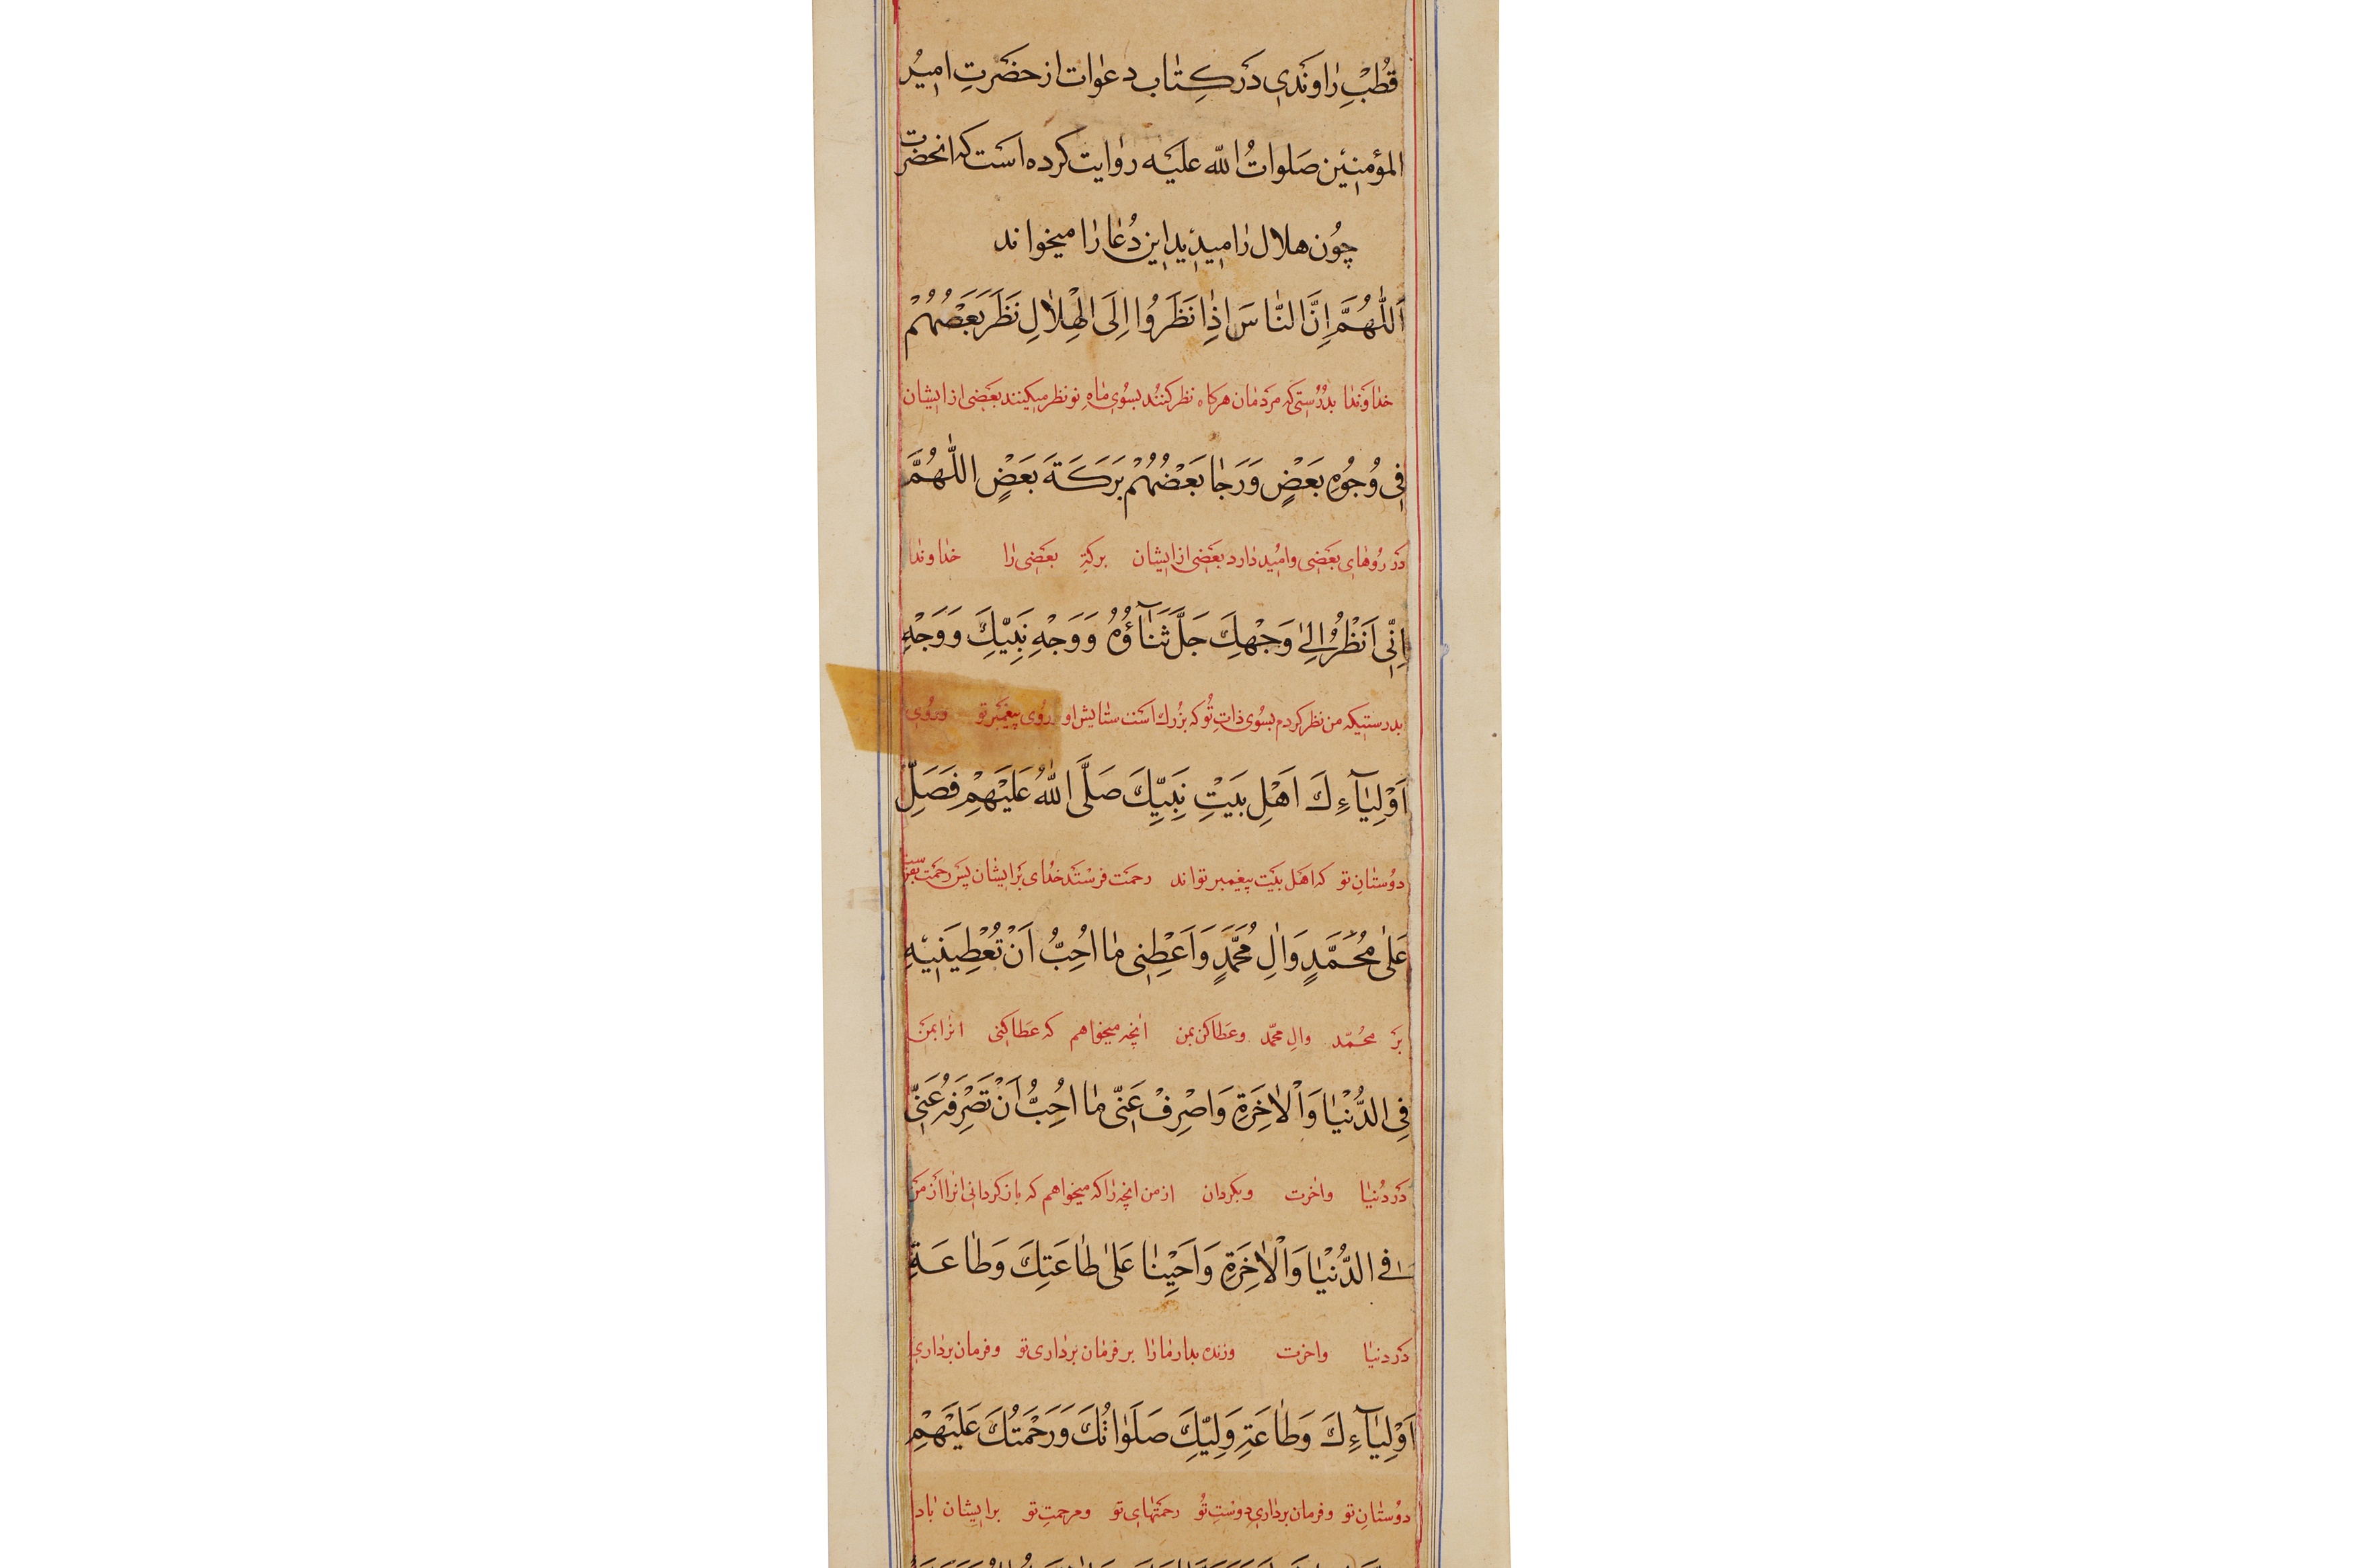 قُطْبِ رٰاوَندی دَر کِتٰاب دعوٰات از حضَرتِ امیرُ
المؤمنین صَلوٰاتُ الله علَیه روٰایت کرده است که انحضرت
چُون هلال رٰا میدید این دُعٰا رٰا میخواند
اَللّٰهُمَّ اِنَّ النّٰاسَ اِذٰا نَظَرُوا اِلَی الْهِلٰالِ نَظَرَ بَعْضُهُمْ
خدٰاوَندٰا بدُرُستی که مَردمٰان هرکاه نظر کنند بسُوی مٰاهِ نو نظر میکنند بعَضی از ایشان
فِی وُجُوهِ بَعْضٍ وَرَجٰا بَعْضُهُمْ بَرَکَةَ بَعْضٍ اللّٰهُمَّ
دَر رُوهٰای بعَضی و امُید دٰارد بعَضی از ایشان برکتِ بعَضی رٰا خدٰاوندٰا
اِنّی اَنْظُرُ اِلٰی وَجْهِكَ جَلَّ ثَنٰآؤُهُ وَوَجْهِ نَبِیِّكَ وَوَجْهِ
بدرستیکه من نظر کردم بسُوی ذاتِ تُو که بزُرك اسَت ستٰایش او و رُوی پیغمَبر تو و رُوی
اَوْلِیٰآءِكَ اَهْلِ بَیْتِ نَبِیِّكَ صَلَّی اللّٰهُ عَلَیْهِمْ فَصَلِّ
دوُستٰانِ تو که اهَل بیَت پیغمبر تواند رحمَت فرسَتد خدٰای برَ ایشٰان پسَ رحمَت بفرست
عَلٰی مُحَمَّدٍ وَاٰلِ مُحَمَّدٍ وَاَعْطِنِی مٰا اُحِبُّ اَنْ تُعْطِیَنِیهِ
بَر محُمّد واٰلِ محمّد وعَطٰا کن بمن اٰنچه میخواهم که عَطٰا کنی انرٰا بمَن
فِی الدُّنْیٰا وَاْلاٰخِرَةِ وَاصْرِفْ عَنّی مٰا اُحِبُّ اَنْ تَصْرِفَهُ عَنّی
دَر دُنیٰا واٰخرت وبکردان از من انچه رٰا که میخواهم که باز کردانی انرٰا از من
فِی الدُّنْیٰا وَاْلاٰخِرَةِ وَاَحْیِنٰا عَلٰی طٰاعَتِكَ وَطٰاعَةِ
دَر دنیٰا واخرت وزنده بدار مٰا رٰا بر فرمٰان برَدٰاری تو وفرمان برَدٰاری
اَوْلِیٰآءِكَ وَطٰاعَةِ وَلِیِّكَ صَلَوٰاتُكَ وَرَحْمَتُكَ عَلَیْهِمْ
دوُستٰانِ تو وفرمان برَدٰاریِ دوسَتِ تُو رحمَتهٰای تو ومرحمتِ تو بر ایشان بٰاد